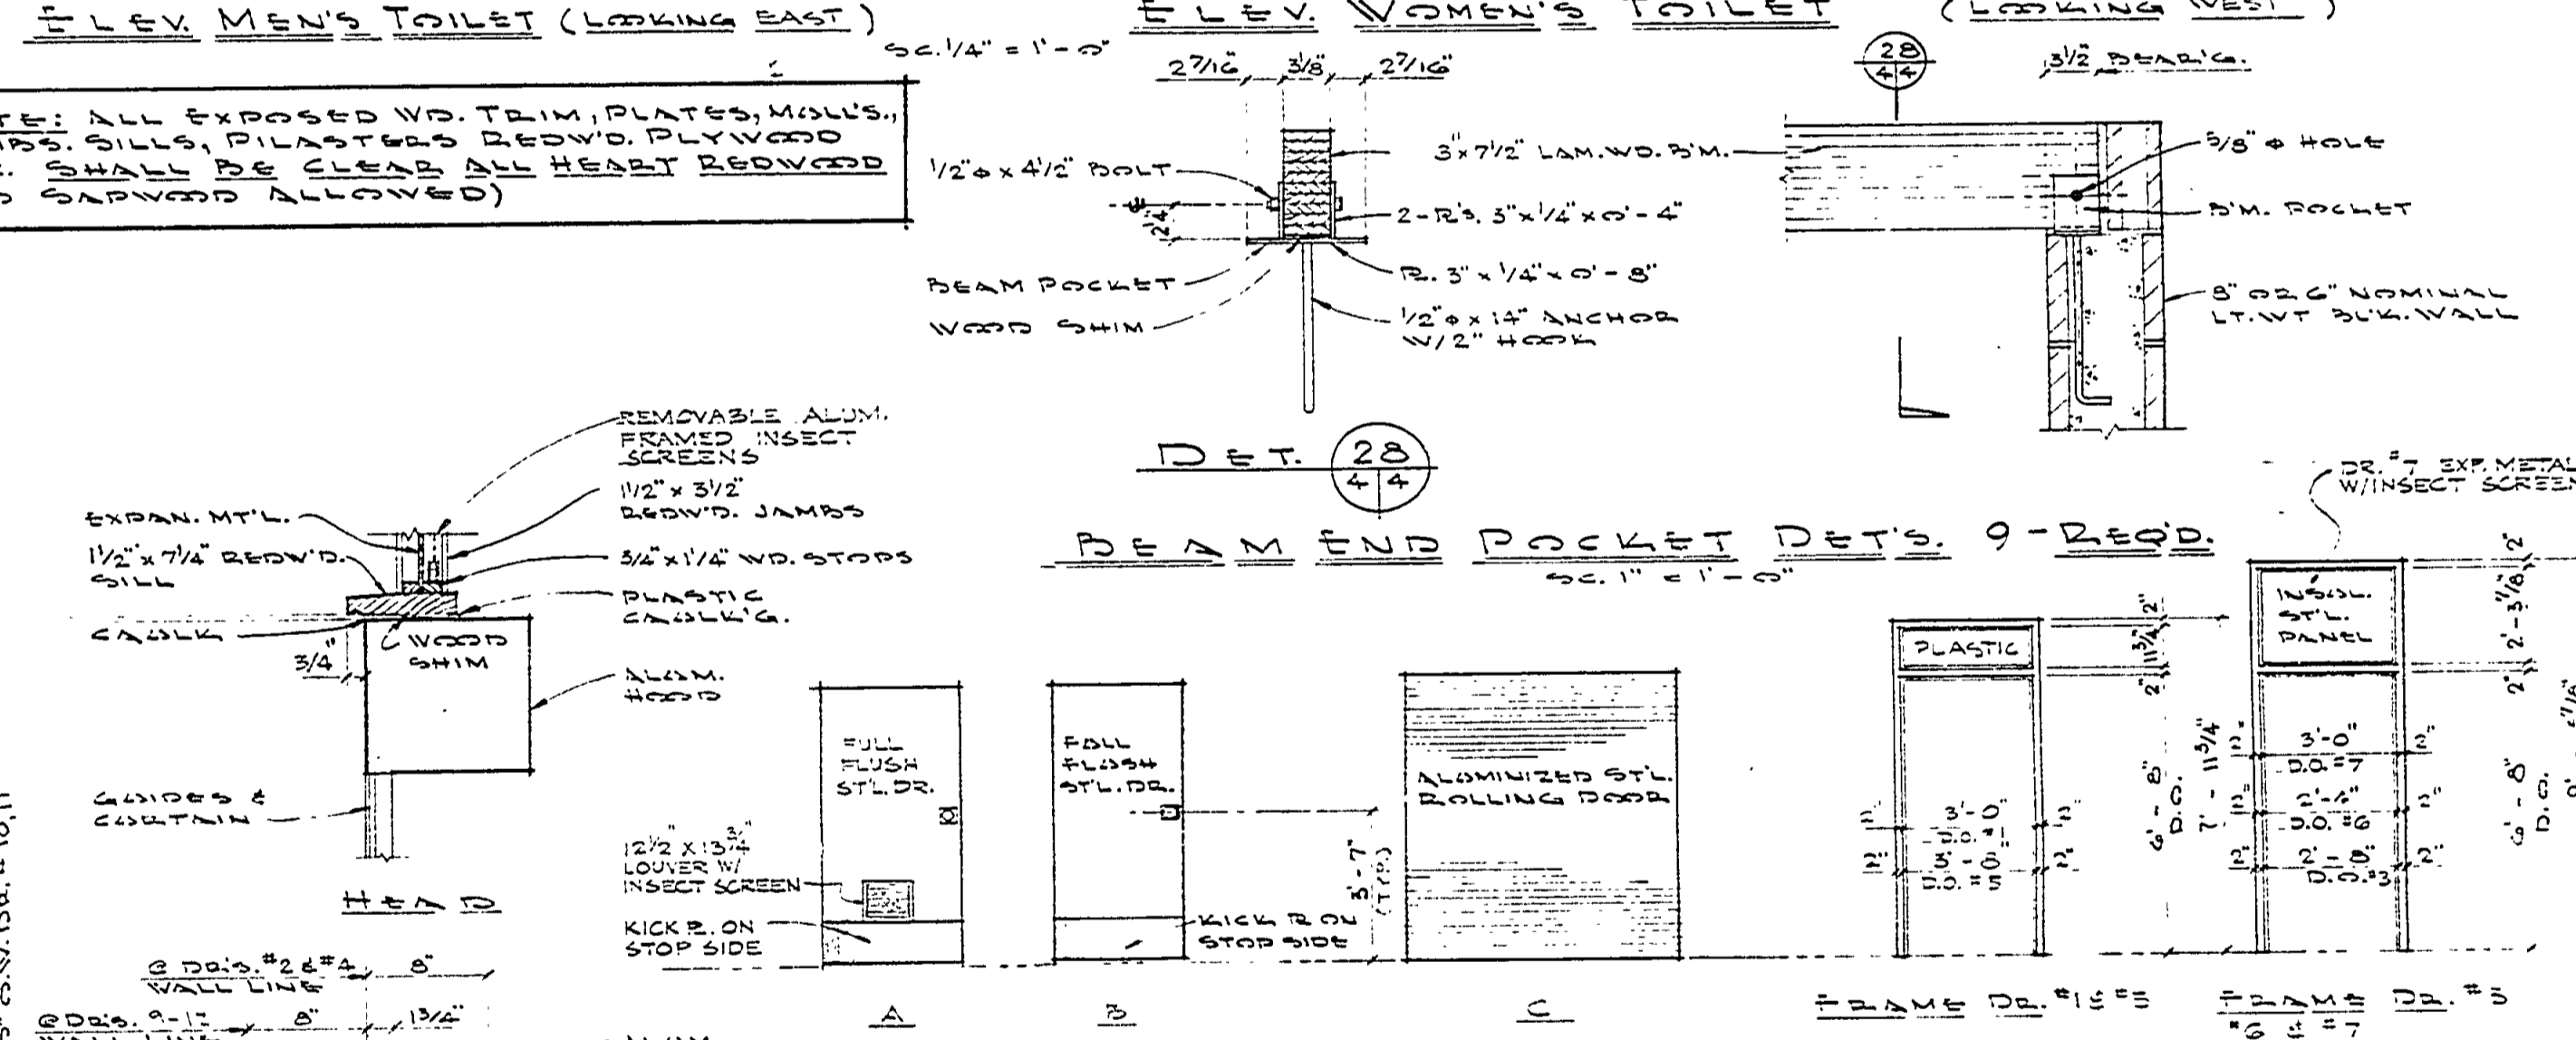 ELEV. MEN'S TOILET (LOOKING EAST)
SC. 1/4" = 1'-0"
ELEV. WOMEN'S TOILET (LOOKING WEST)
ALL EXPOSED WD. TRIM, PLATES, MOLL'S.,
SILLS, PILASTERS REDW'D. PLYWOOD
SHALL BE CLEAR ALL HEART REDWOOD
SAPWOOD ALLOWED)
2 7/16" 3 1/8" 2 7/16"
1/2" φ x 4 1/2" BOLT
2 1/4"
BEAM POCKET
WOOD SHIM
3" x 7 1/2" LAM. WD. B'M.
2-PL's. 3" x 1/4" x 0'-4"
PL. 3" x 1/4" x 0'-8"
1/2" φ x 14" ANCHOR
W/2" HOOK
28
4 4
3 1/2 BEAR'G.
5/8" φ HOLE
B'M. POCKET
8" OR 6" NOMINAL
LT. WT BLK. WALL
DET. 28
4 4
BEAM END POCKET DET'S. 9-REQ'D.
SC. 1" = 1'-0"
REMOVABLE ALUM.
FRAMED INSECT
SCREENS
1 1/2" x 3 1/2"
REDW'D. JAMBS
EXPAN. MT'L.
1 1/2" x 7 1/4" REDW'D.
SILL
3/4" x 1 1/4" WD. STOPS
PLASTIC
CAULK'G.
CAULK
WOOD
SHIM
3/4"
ALUM.
HOOD
GUIDES &
CURTAIN
HEAD
@ DR'S. #2 & #4 8"
WALL LINE
@ DR'S. 9-12 8" 1 3/4"
WALL LINE
FULL
FLUSH
ST'L. DR.
12 1/2" X 13 3/4"
LOUVER W/
INSECT SCREEN
KICK PL. ON
STOP SIDE
A
FULL
FLUSH
ST'L. DR.
KICK PL ON
STOP SIDE
3'-7"
(TYP.)
B
ALUMINIZED ST'L.
ROLLING DOOR
C
PLASTIC
2"
11 3/4"
2"
6'-8"
D.O.
7'-11 3/4"
2" 3'-0" 2"
D.O. #1
2" 3'-0" 2"
D.O. #5
FRAME DR. #1 & #5
DR. #7 EXP. METAL
W/INSECT SCREEN
INSUL.
ST'L.
PANEL
2"
2'-3 7/8"
2"
6'-8"
D.O.
2" 3'-0" 2"
D.O. #7
2" 2" 
D.O. #6
2" 2'-8" 2"
D.O. #3
FRAME DR. #3
#6 & #7